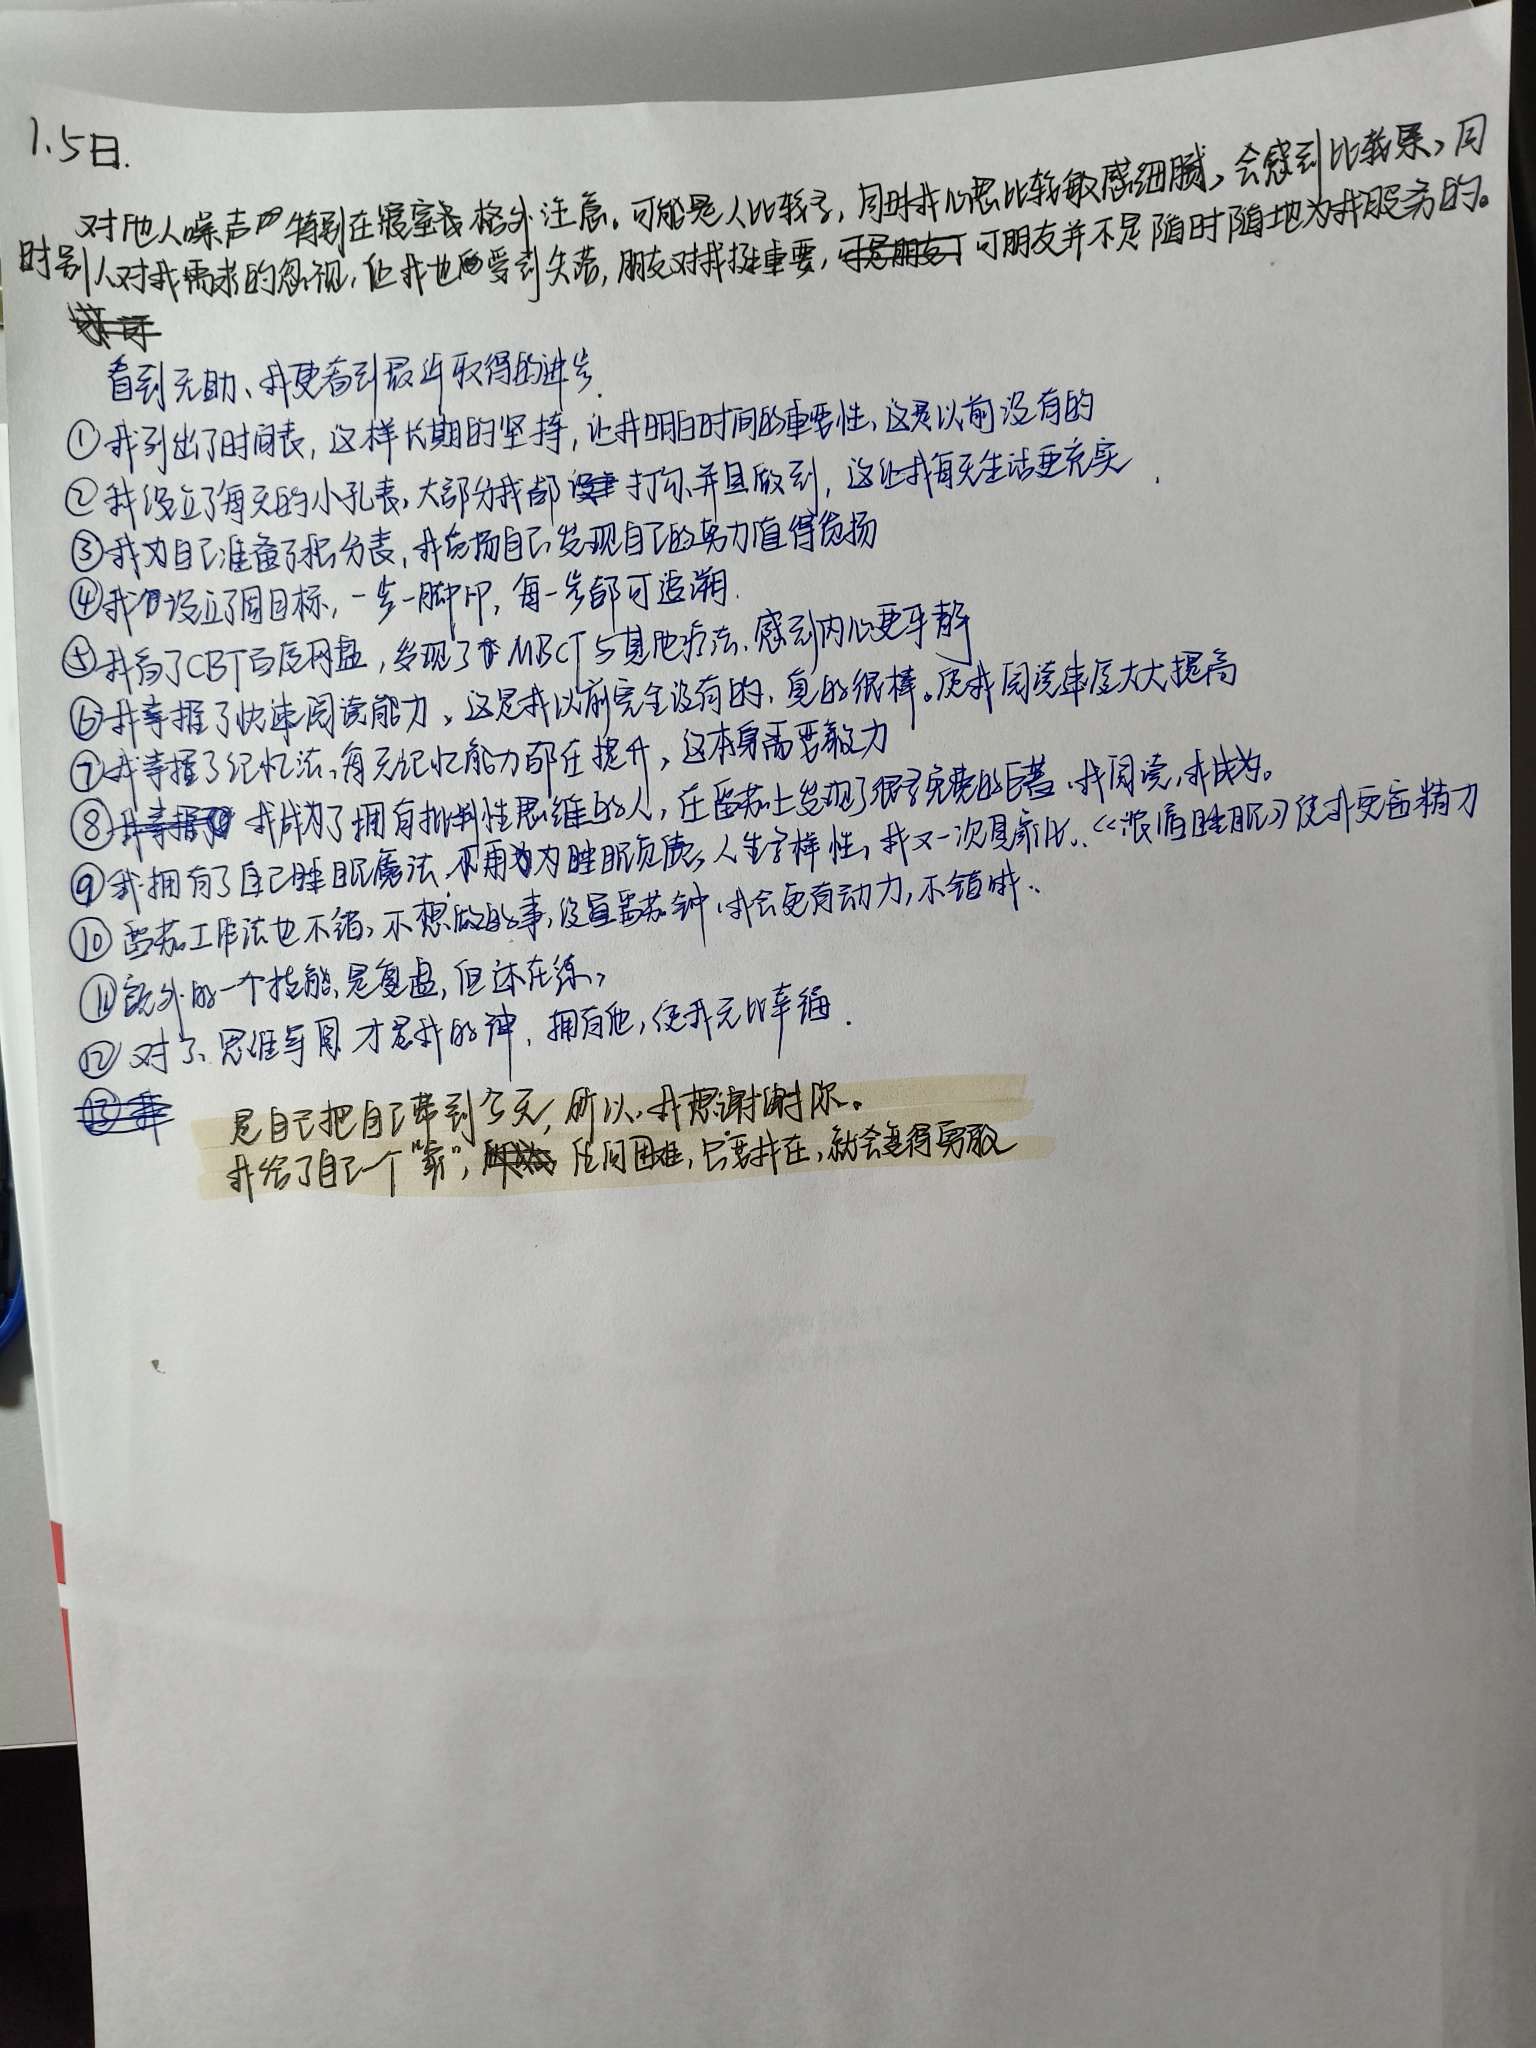 1.5日.
对他人噪声 特别在寝室我格外注意。可能是人比较多，同时我心思比较敏感细腻、会感到比较累、同
时别人对我需求的忽视，但我也 受到失落，朋友对我挺重要， 可朋友并不是随时随地为我服务的。
看到无助、我更看到最近取得的进步.
①我列出了时间表，这样长期的坚持，让我明白时间的重要性、这是以前没有的
②我设立了每天的小 表，大部分我都 打 并且做到，这让我每天生活更充实.
③我为自己准备了积分表，我发扬自己发现自己的努力值得发扬
④我 设立了周目标，一步一脚印，每一步都可追溯.
⑤我有了CBT百度网盘，发现了 MBCT与其他疗法、感到内心更平静
⑥我掌握了快速阅读能力、这是我以前完全没有的、真的很棒。使我阅读速度大大提高
⑦我掌握了记忆法、每天记忆能力都在提升，这本身需要毅力
⑧ 我成为了拥有批判性思维的人，在番茄上发现了很多免费的巨著、我阅读，我成为。
⑨我拥有了自己睡眠魔法、不用 为睡眠负债、人生多样性，我又一次具象化、《 睡眠》使我更富精力
⑩番茄工作法也不错、不想做的事，设置番茄钟、我会更有动力，不错哦、
⑪额外的一个技能、是复盘，但还在练、
⑫对了、思维导图才是我的神、拥有他，使我无比幸福.
是自己把自己带到今天，所以、我想谢谢你。
我给了自己一个“家”， 任何困难，只要我在，就会变得勇敢